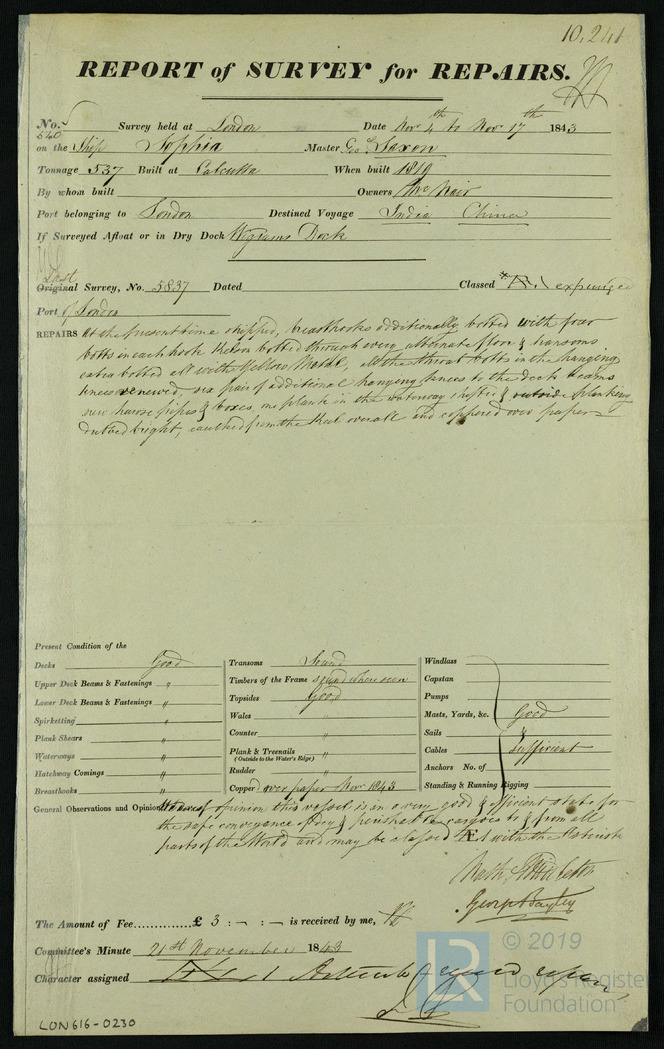 10,241
REPORT of SURVEY for REPAIRS.
No. 540 Survey held at London Date Nov 4th to Nov 17th 1843
on the Ship Sophia Master Geo Saxon
Tonnage 537 Built at Calcutta When built 1819
By whom built Owners McNair
Port belonging to London Destined Voyage India China
If Surveyed Afloat or in Dry Dock Wigrams Dock
Last
Original Survey, No. 5837 Dated Classed expunged
Port of London
REPAIRS At the present time stripped, breasthooks additionally bolted with four
bolts in each hook Kelson bolted through every alternate floor & transoms
extra bolted all with Yellow Metal, all the throat bolts in the hanging
knees renewed, six pair of additional hanging knees to the deck beams
new hawse pipes & boxes, one plank in the waterway shifted & outside planking
dubbed bright, caulked from the Keel overall and coppered over paper
Present Condition of the
Decks Good
Upper Deck Beams & Fastenings "
Lower Deck Beams & Fastenings "
Spirketting "
Plank Shears "
Waterways "
Hatchway Comings "
Breasthooks "
Transoms Sound
Timbers of the Frame sound where seen
Topsides Good
Wales "
Counter "
Plank & Treenails "
(Outside to the Water's Edge)
Rudder "
Copper over paper Nov 1843
Windlass
Capstan
Pumps
Masts, Yards, &c. Good
Sails &
Cables sufficient
Anchors No. of
Standing & Running Rigging
General Observations and Opinion We are of opinion this vessel is in a very good & efficient state for
the safe conveyance of dry & perishable cargoes to & from all
parts of the World and may be classed Æ1 with the Asterisk
Nath Middleton
George Bayley
The Amount of Fee.............. £ 3 : - : - is received by me,
Committee's Minute 21st November 1843
Character assigned
LON616-0230
© 2019
LR
Lloyd's Register
Foundation